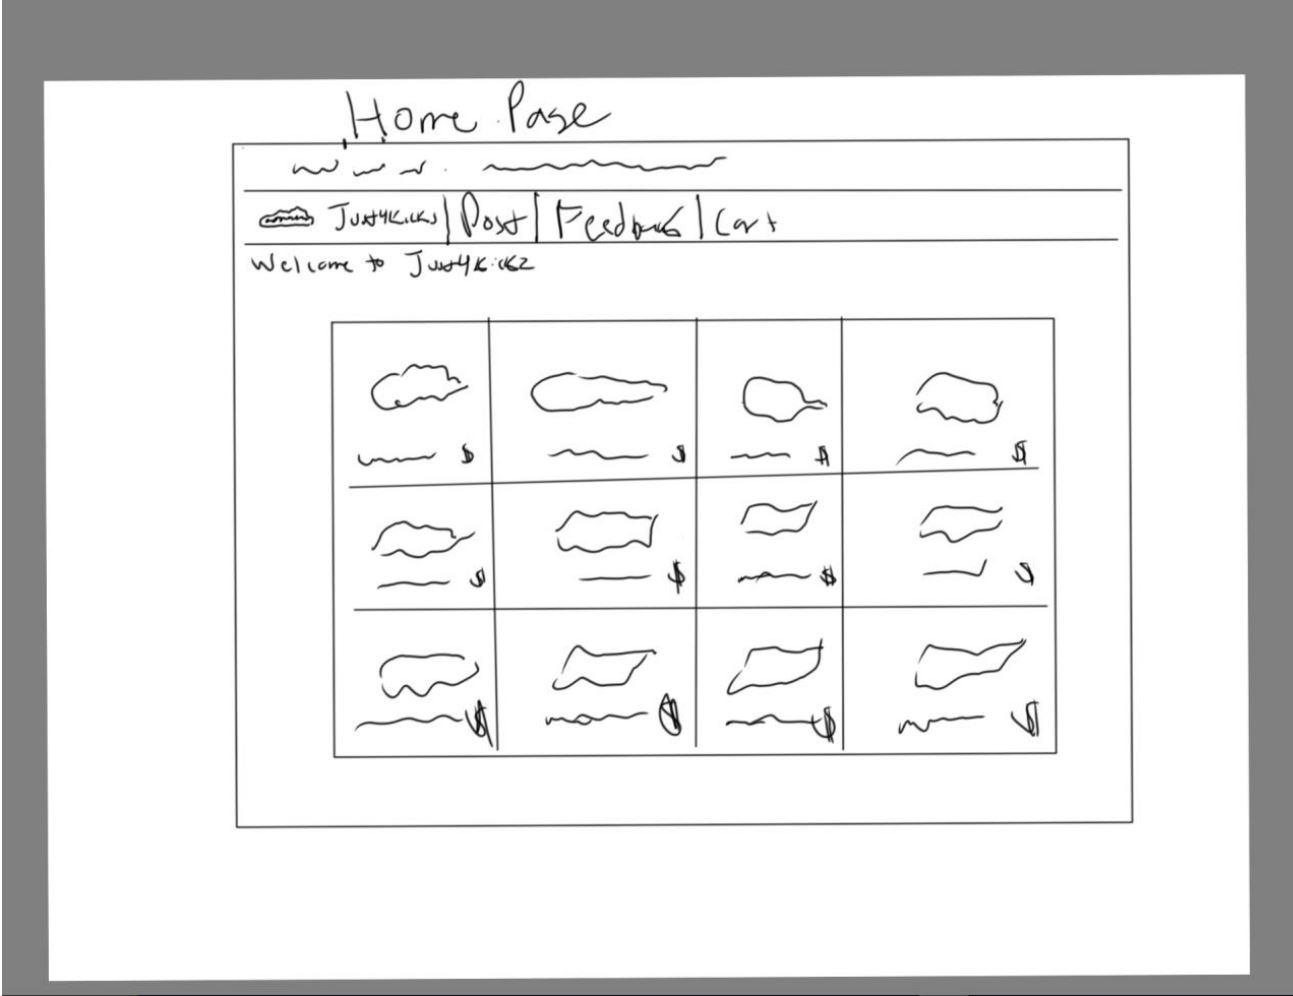 Home Page
Just4Kicks | Post | Feedback | Cart
Welcome to Just4Kickz
$ $ $ $
$ $ $ $
$ $ $ $